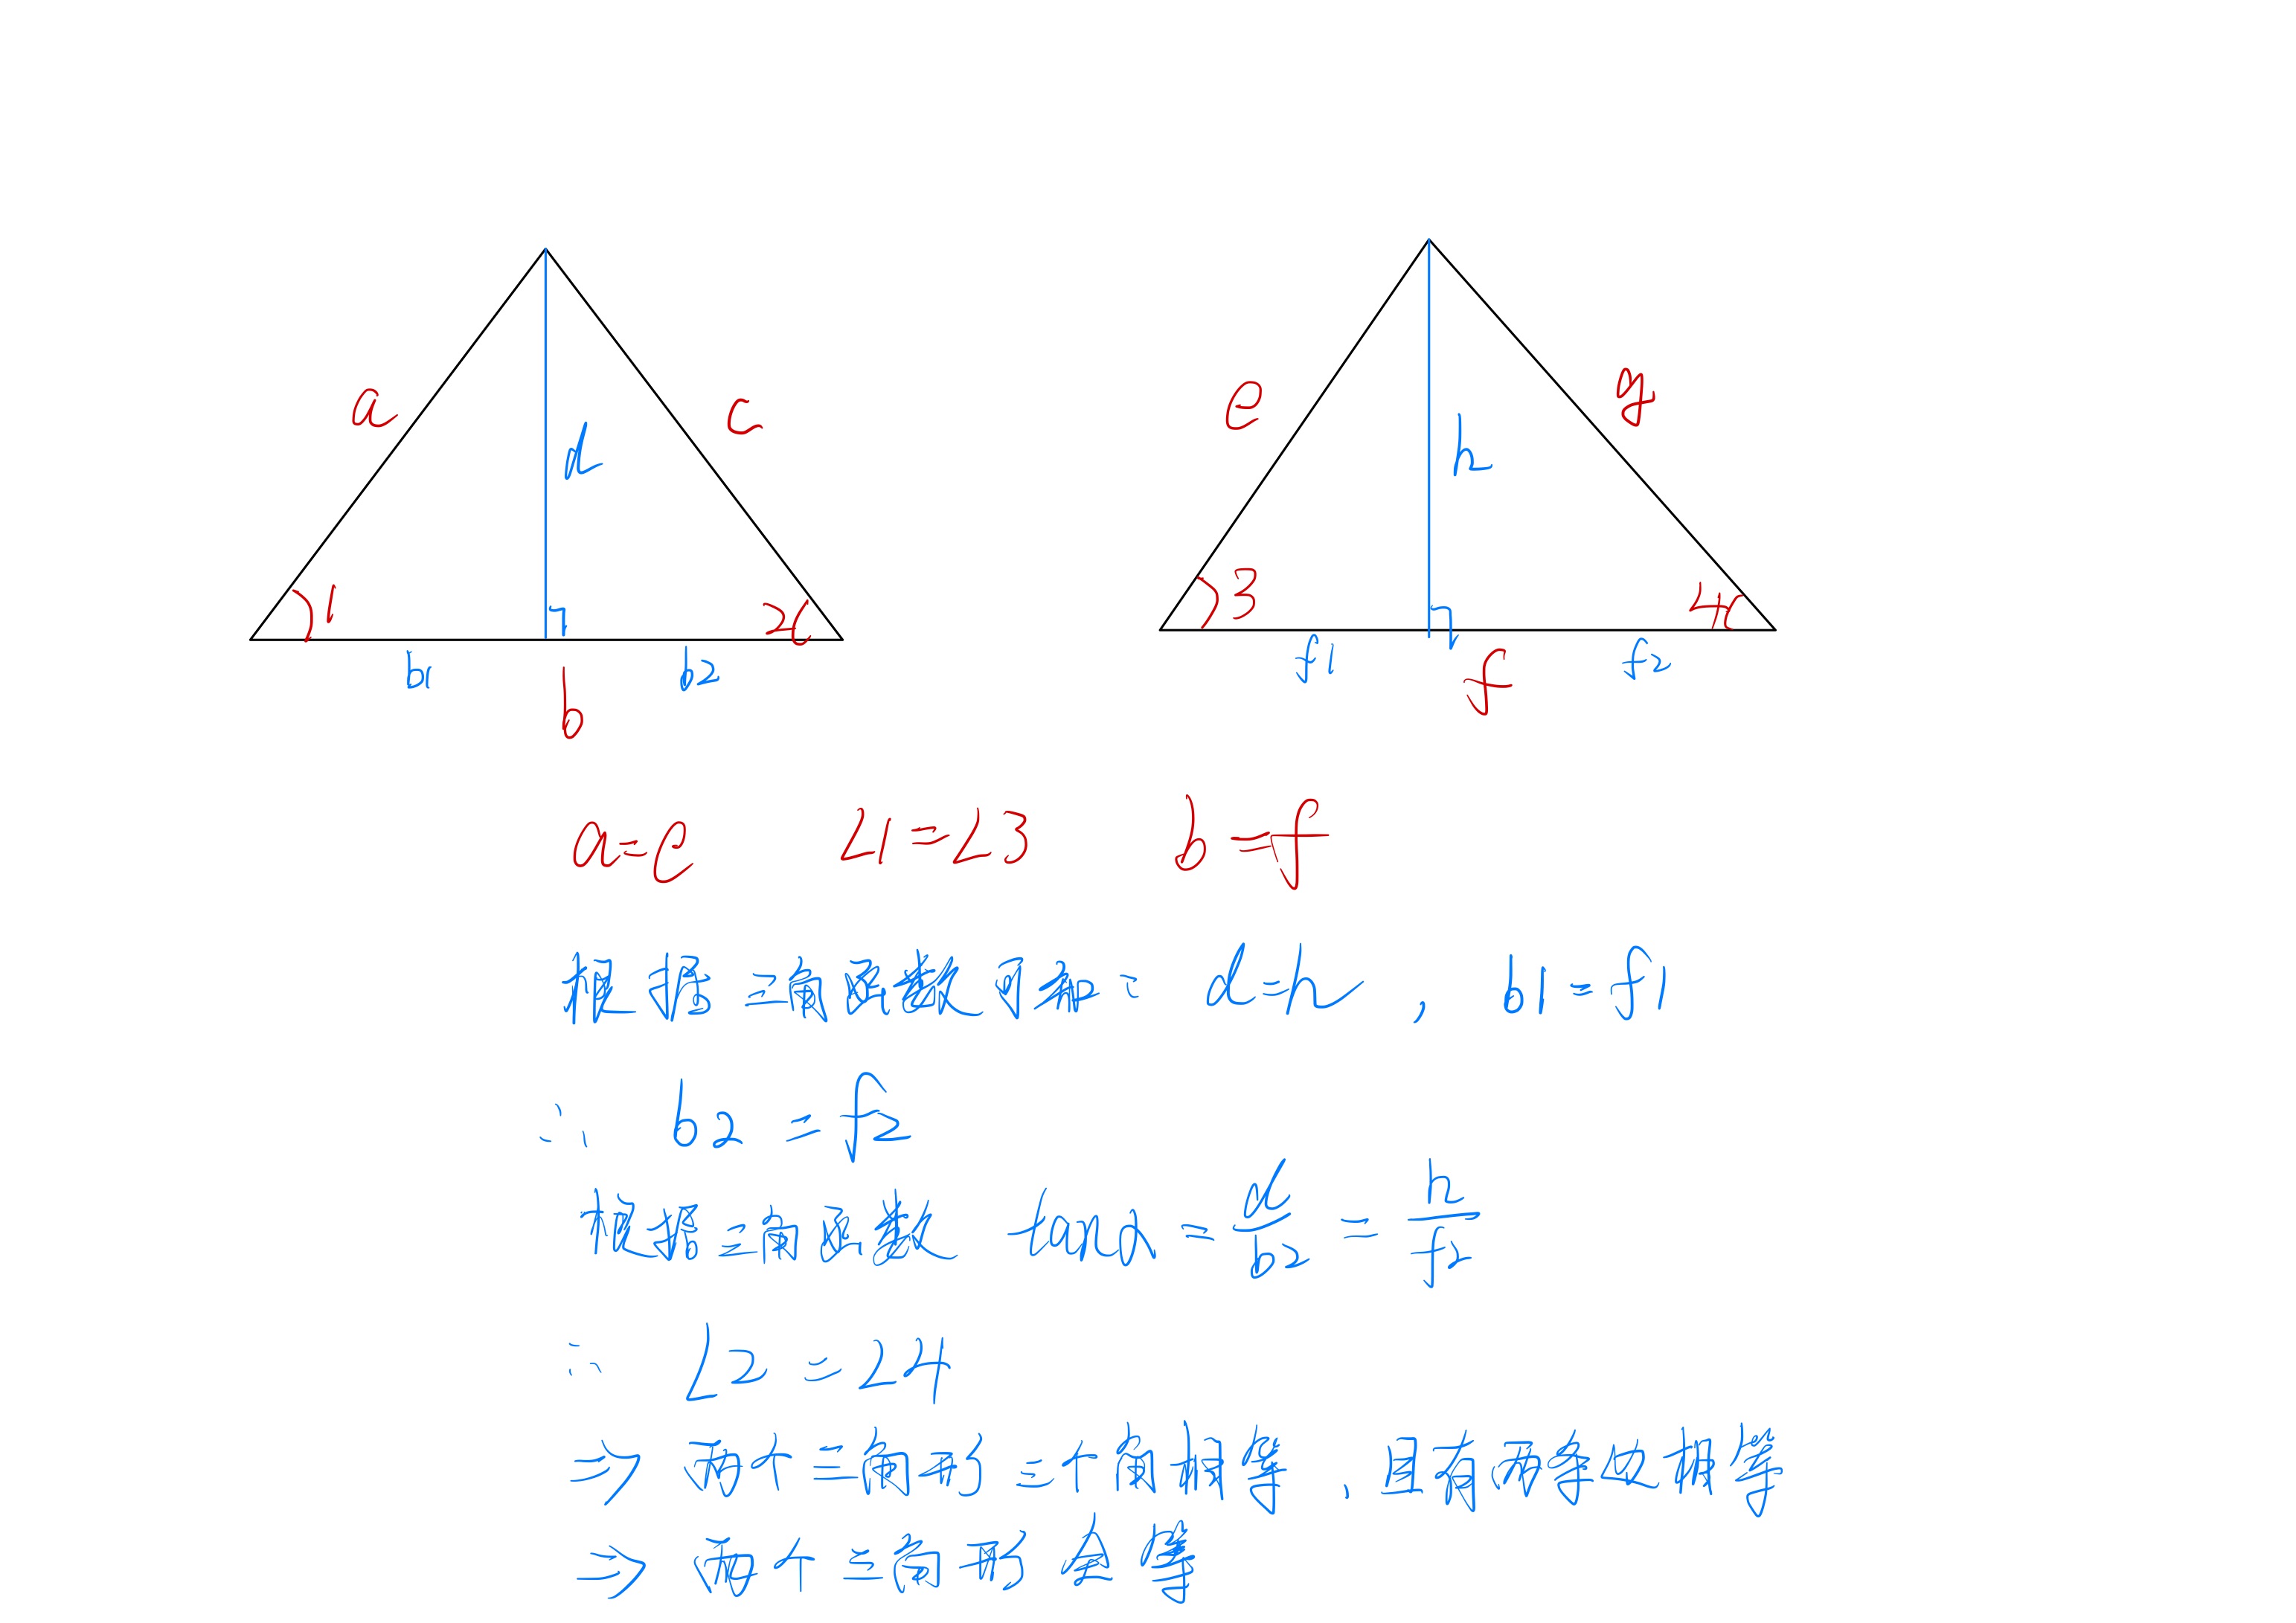 a
c
d
1
2
b1
b2
b
e
g
h
3
4
f1
f2
f
a=e ∠1=∠3 b=f
根据三角函数可知: d=h , b1=f1
∴ b2=f2
根据三角函数 tan=d/b2=h/f2
∴ ∠2=∠4
⇒ 两个三角形三个角相等、且有两条边相等
⇒ 两个三角形全等